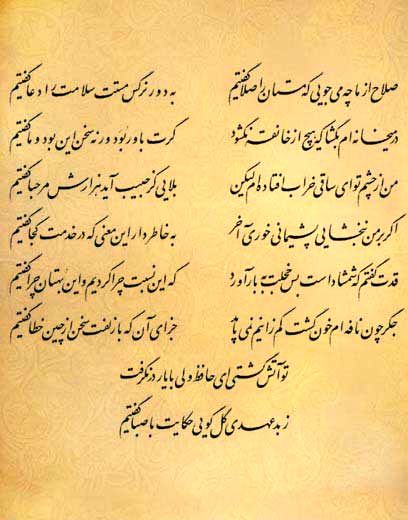 صلاح از ما چه می جویی که مستان را صلا گفتیم به دور نرگس مستت سلامت را دعا گفتیم
در میخانه ام بگشا که هیچ از خانقه نگشود گرت باور بود ور نه سخن این بود و ما گفتیم
من از چشم تو ای ساقی خراب افتاده ام لیکن بلایی کز حبیب آید هزارش مرحبا گفتیم
اگر بر من نبخشایی پشیمانی خوری آخر به خاطر دار این معنی که در خدمت کجا گفتیم
قدت گفتم که شمشاد است بس خجلت به بار آورد که این نسبت چرا کردیم و این بهتان چرا گفتیم
جگر چون نافه ام خون گشت کم نمی باید جزای آن که با زلفت سخن از چین خطا گفتیم
تو آتش گشتی ای حافظ ولی با یار درنگرفت
ز بدعهدی گل گویی حکایت با صبا گفتیم